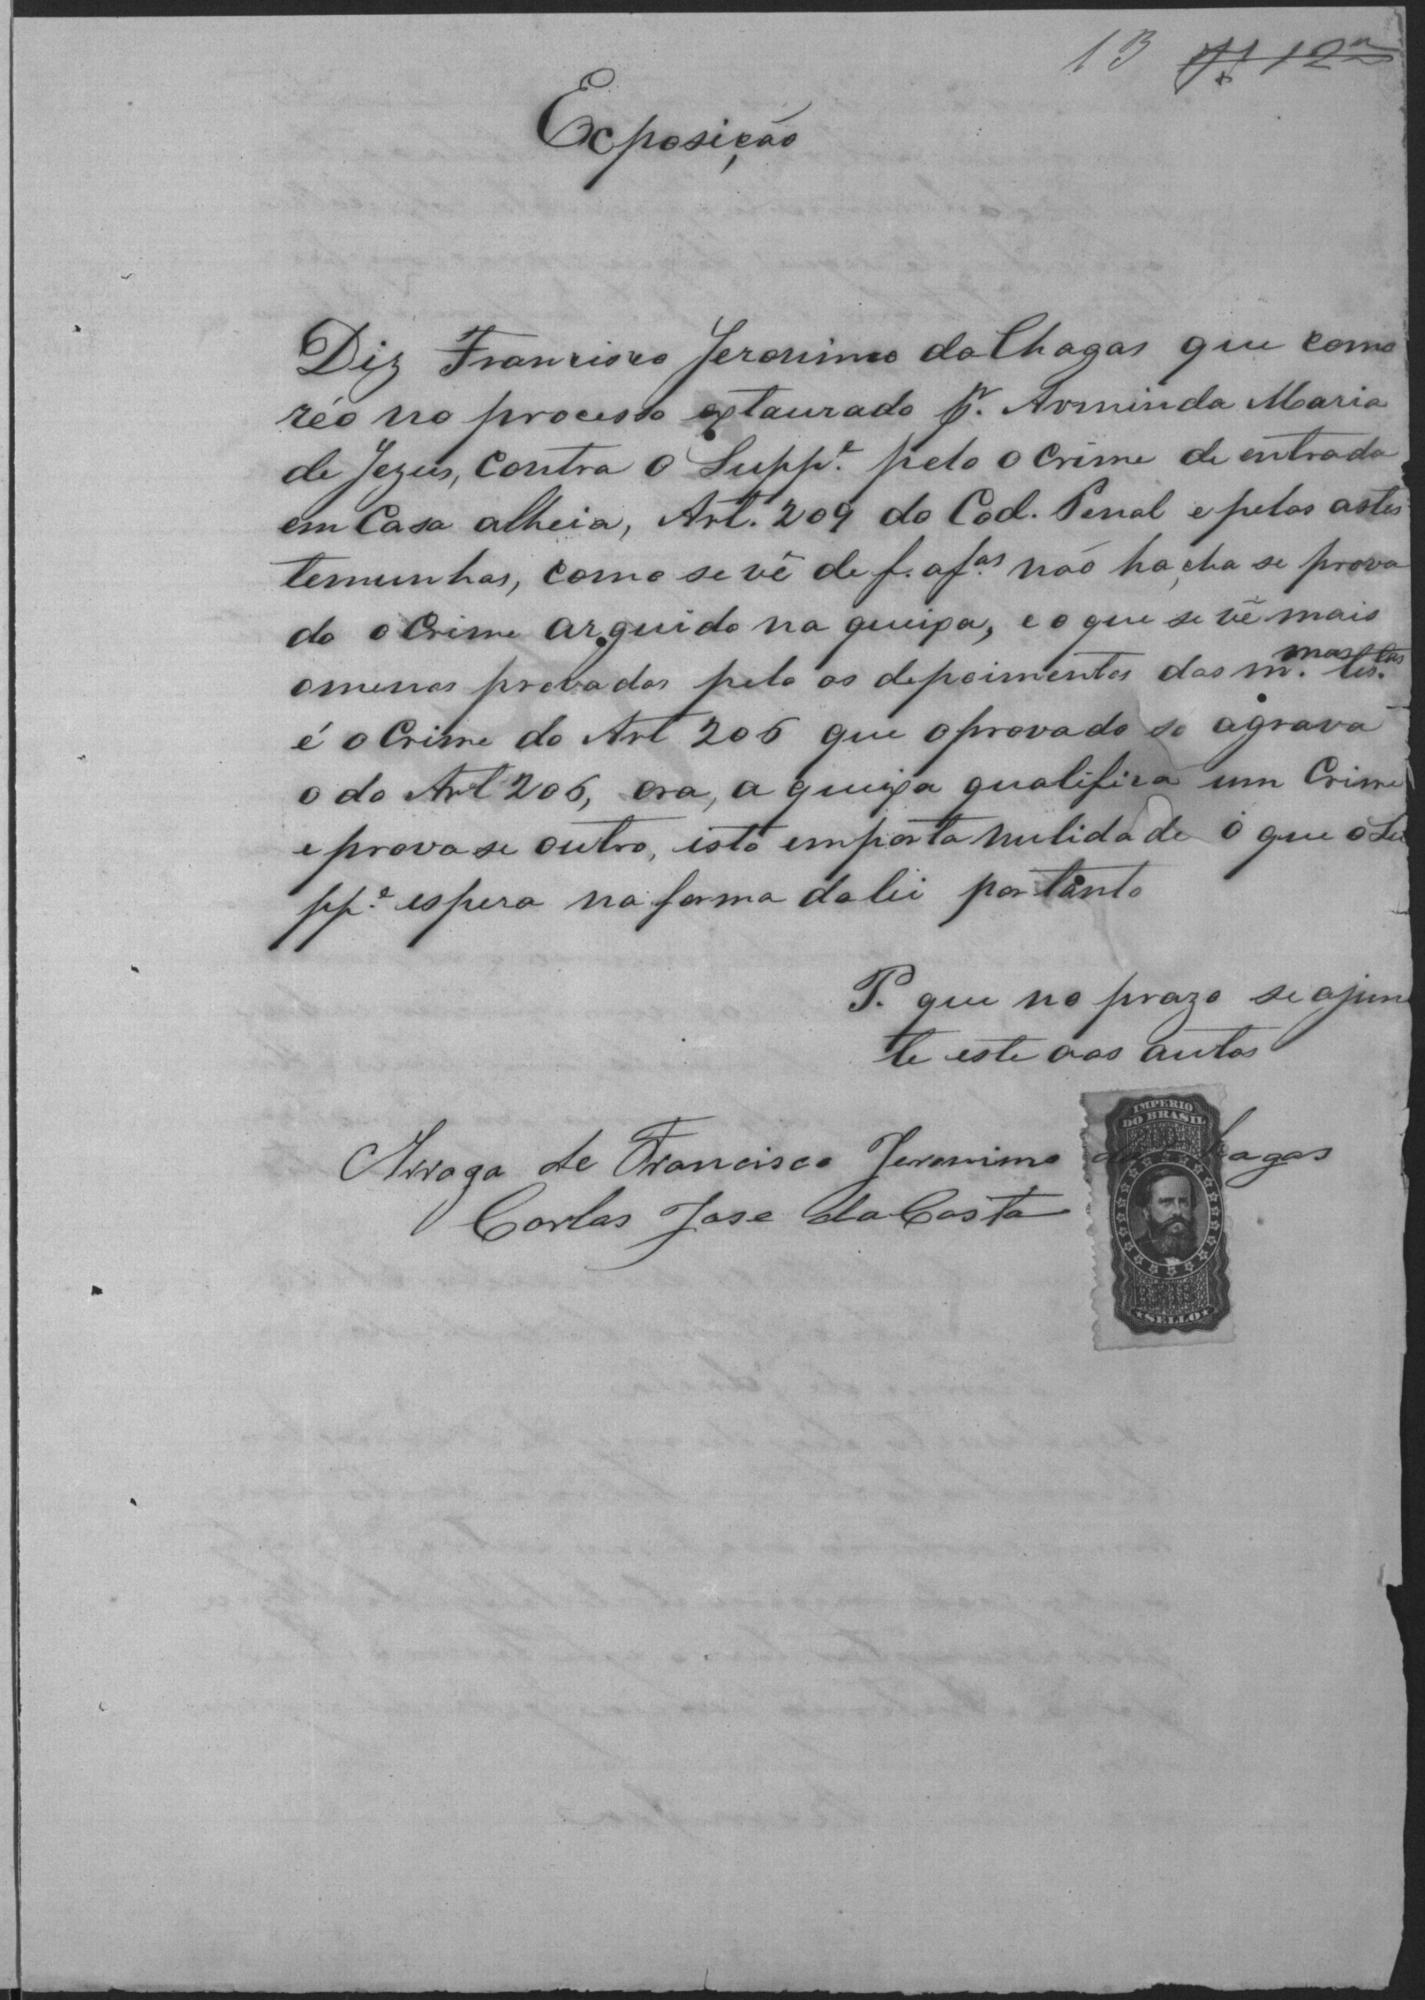 13 fl 12
Exposição
Diz Francisco Jeronimo da Chagas que como
réo no processo extaurado pr. Arminda Maria
de Jezus, contra o Suppe. pelo o crime de entrada
em Casa alheia, Art. 209 do Cod. Penal e pelas astes
temunhas, como se vê de f. a fas. não ha cha se prova
do o Crime arguido na queixa, e o que se vê mais
omenos provados pelo os depoimentos das mmas. testas.
é o Crime do Art 206 que oprovado so agrava
o do Art 206, ora, a queixa qualifica um Crime
e prova se outro, isto emporta nulidade o que o Su
ppe. espera na forma da lei portanto
P. que no prazo se ajun
te este aos autos
Arroga de Francisco Jeronimo da Chagas
Carlos Jose da Costa
IMPERIO
DO BRASIL
SELLO